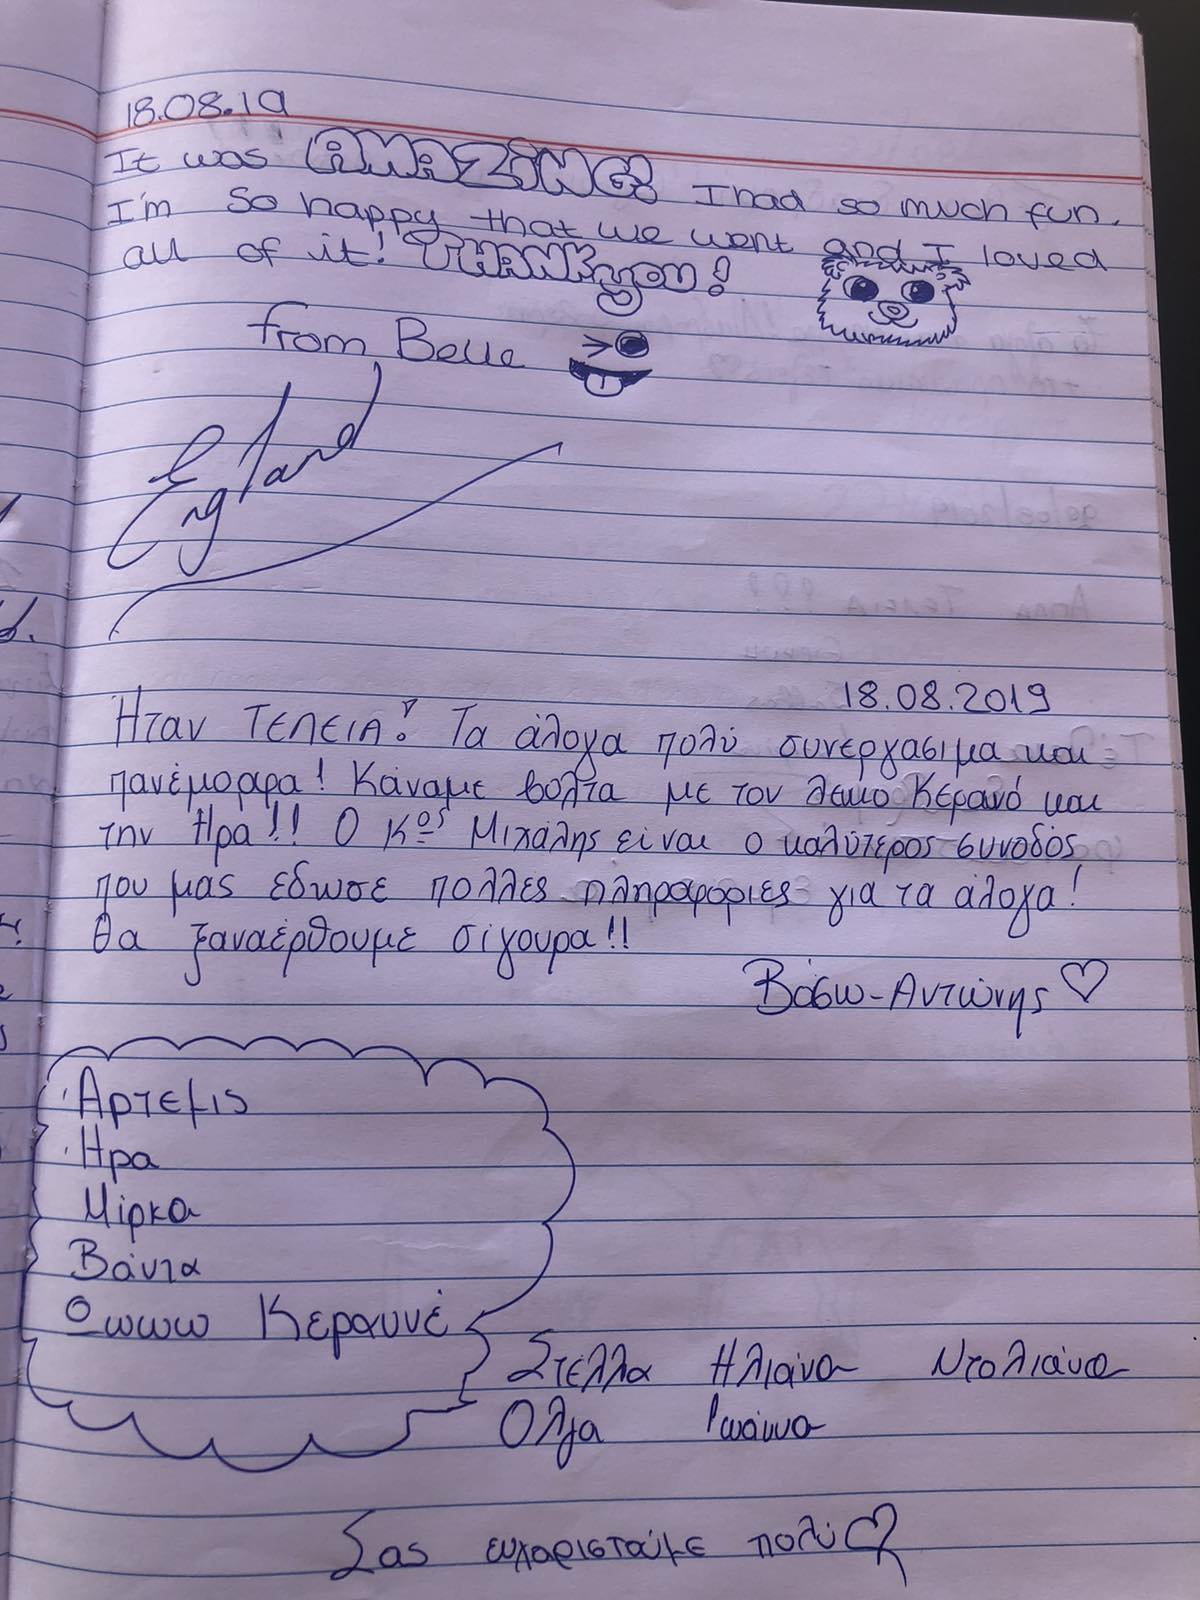 18.08.19
It was AMAZING! I had so much fun.
I'm so happy that we went and I loved
all of it! THANK you!
from Belle
England
18.08.2019
Ήταν ΤΕΛΕΙΑ! Τα άλογα πολύ συνεργασιμα και
πανέμορφα! Κάναμε βόλτα με τον λευκο Κεραυνό και
την Ήρα!! Ο Κος Μιχάλης είναι ο καλύτερος συνοδός
που μας έδωσε πολλές πληροφορίες για τα άλογα!
Θα ξαναέρθουμε σίγουρα!!
Βάσω-Αντώνης ♡
Άρτεμις
Ήρα
Μίρκα
Βάντα
Οωωω Κεραυνέ
Στέλλα Ηλιάνα Ντολιάνα
Όλγα Ιωάννα
Σας ευχαριστούμε πολύ ♡